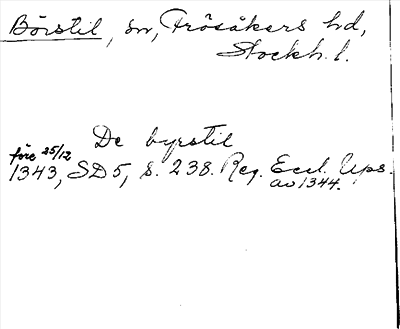 Börstil, sn, Frösåkers hd,
Stockh. l.
De byrstil
före 25/12
1343, SD5, s. 238. Reg. Eccl. Ups.
av 1344.